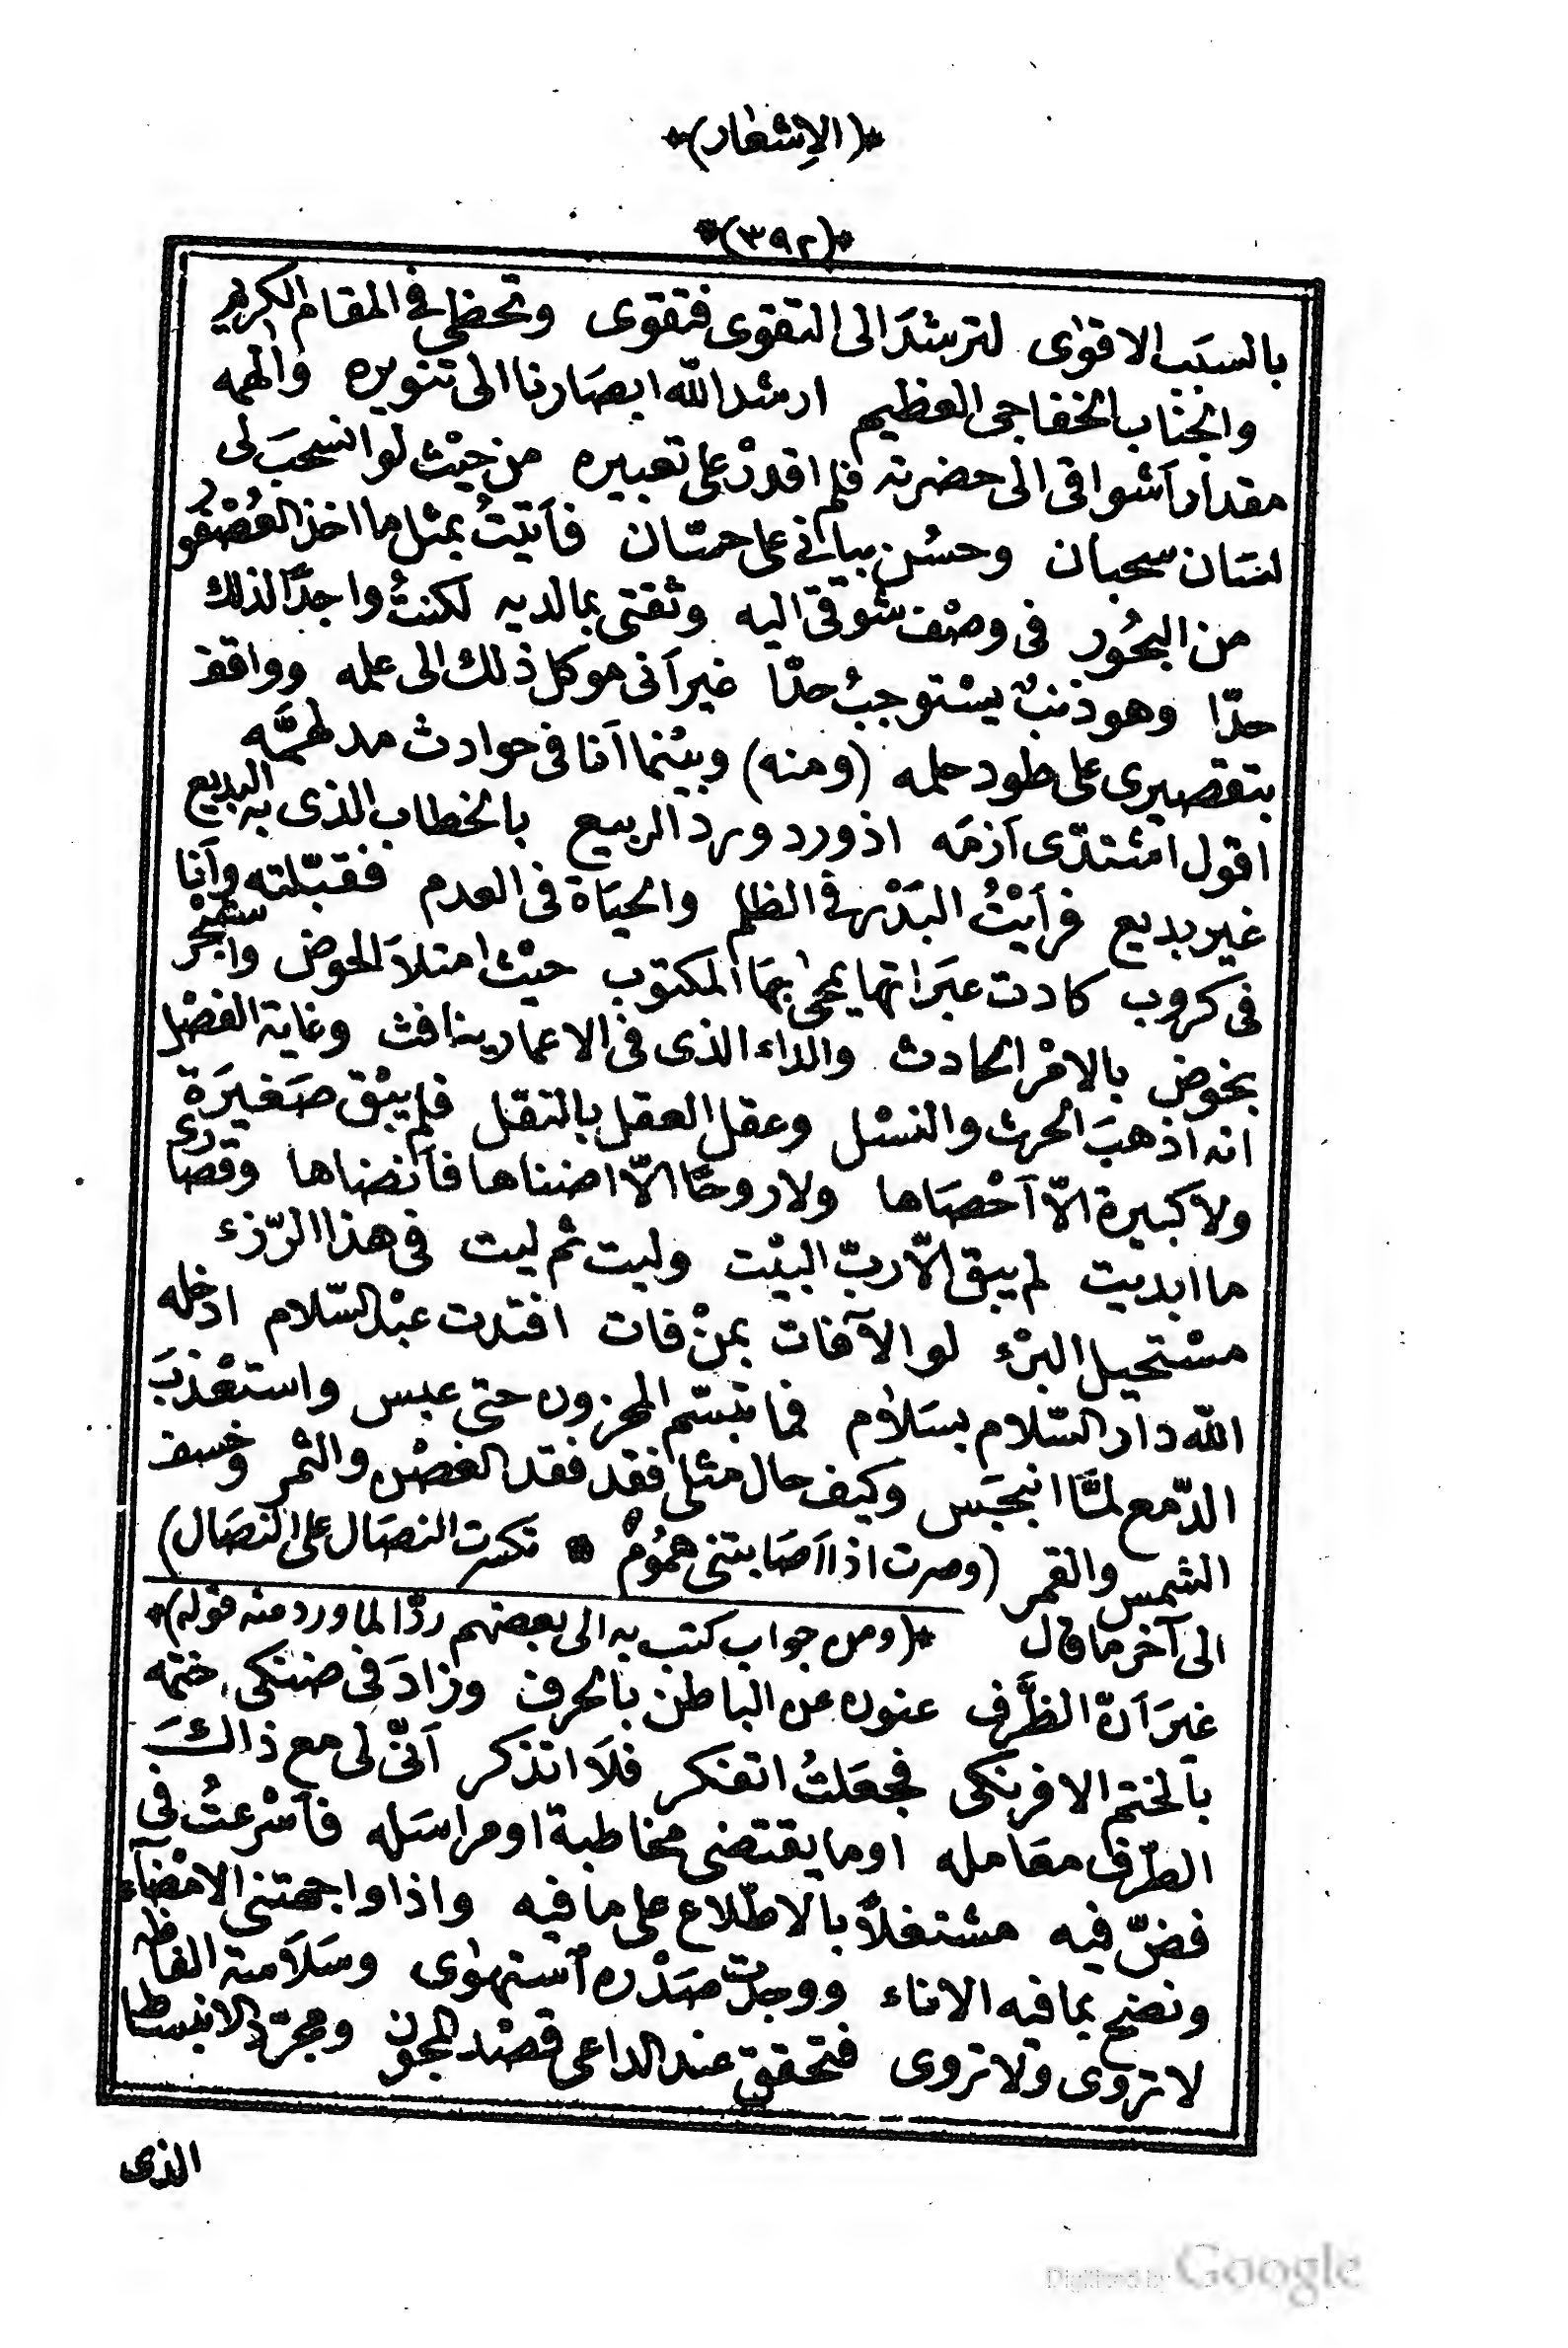 *(الاِشعار)*
*(٣٩٢)*
بالسبَب الاقوٰى لترشدَ الى التقوى فتقوى وتحظى فى المقام الكريم
والجناب الخفاجى العظيم ارشد الله ابصَارنا الى تنويره والهمه
مقدار أشواقى الى حضرته فلم اقدرْ على تعبيره من حيْث لو انسحبَ لى
لسَان سحبان وحسْن بيانى على حسّان فأتيْتُ بمثل ما اخذ العُصْفور
من البحُور فى وصْف شوقى اليه وثقتى بما لديه لكنتُ واجدًا لذلك
حدّا وهو ذنبٌ يسْتوجبُ حدّا غير أنى موكل ذلك الى علمه وواقف
بتقصيرى على طود حلمه (ومنه) وبيْنما أنا فى حوادث مدلهمَّه
اقول اشتدّى أزمَه اذ ورد ورد الربيع بالخطاب الذى به البديع
غير بديع فرأيْتُ البَدْر فى الظلم والحيَاة فى العدم فقبّلته وأنا
فى كروب كادت عبَراتها يمحىٰ بهَا المكتوب حيْث امتلأ الحوض وابحْر ستمحْر
بخوض بالامْر الحادث والداء الذى فى الاعمار ينافث وغاية الفضْل
انه اذهبَ الحرث والنسْل وعقل العقل بالنقل فلم يبْق صَغيرَة
ولا كبيرة الّا أحْصَاها ولا روحًا الّا اضناها فأنضناها وقصَارى
ما ابديت لم يبق الّا ربّ البيْت وليت ثم ليت فى هذا الرّزء
مسْتحيل البرْء لو الآفات بمنْ فات افتدت عبْد السّلام ادخله
الله دار السّلام بسَلاٰم فما تبسّم المحزون حتى عبس واستعْذبَ
الدّمع لمّا انبجَس وكيف حال مثلى فقد فقد الغصْن والثمر وخسف
الشمس والقمر (وصرت اذا اصَابتنى همُومٌ * تكسرت النصَال على النصَال)
الى آخر ما قال *(ومن جواب كتب به الى بعضهم ردّا لما ورد منه قوله)*
غيرَ أنّ الظّرف عنون عن الباطن بالحرف وزادَ فى ضنكى ختمه
بالختم الافرنكى فجعَلتُ اتفكر فلَا اتذكر أنّى لى مع ذالكَ
الطّرف معَامله او ما يقتضى مخاطبة او مراسَله فأسْرعتُ فى
فضّ فيه مشتغلاً بالاطّلاع على ما فيه واذا واجهتنى الامْضآء
ونضح بما فيه الاناء ووجدْت صَدْره أستهوٰى وسَلاَمة الفاظه
لا تروى ولا تروى فتحقق عند الداعى قصْد المجون ومجرّد الانبساط
الذى
Digitized by Google